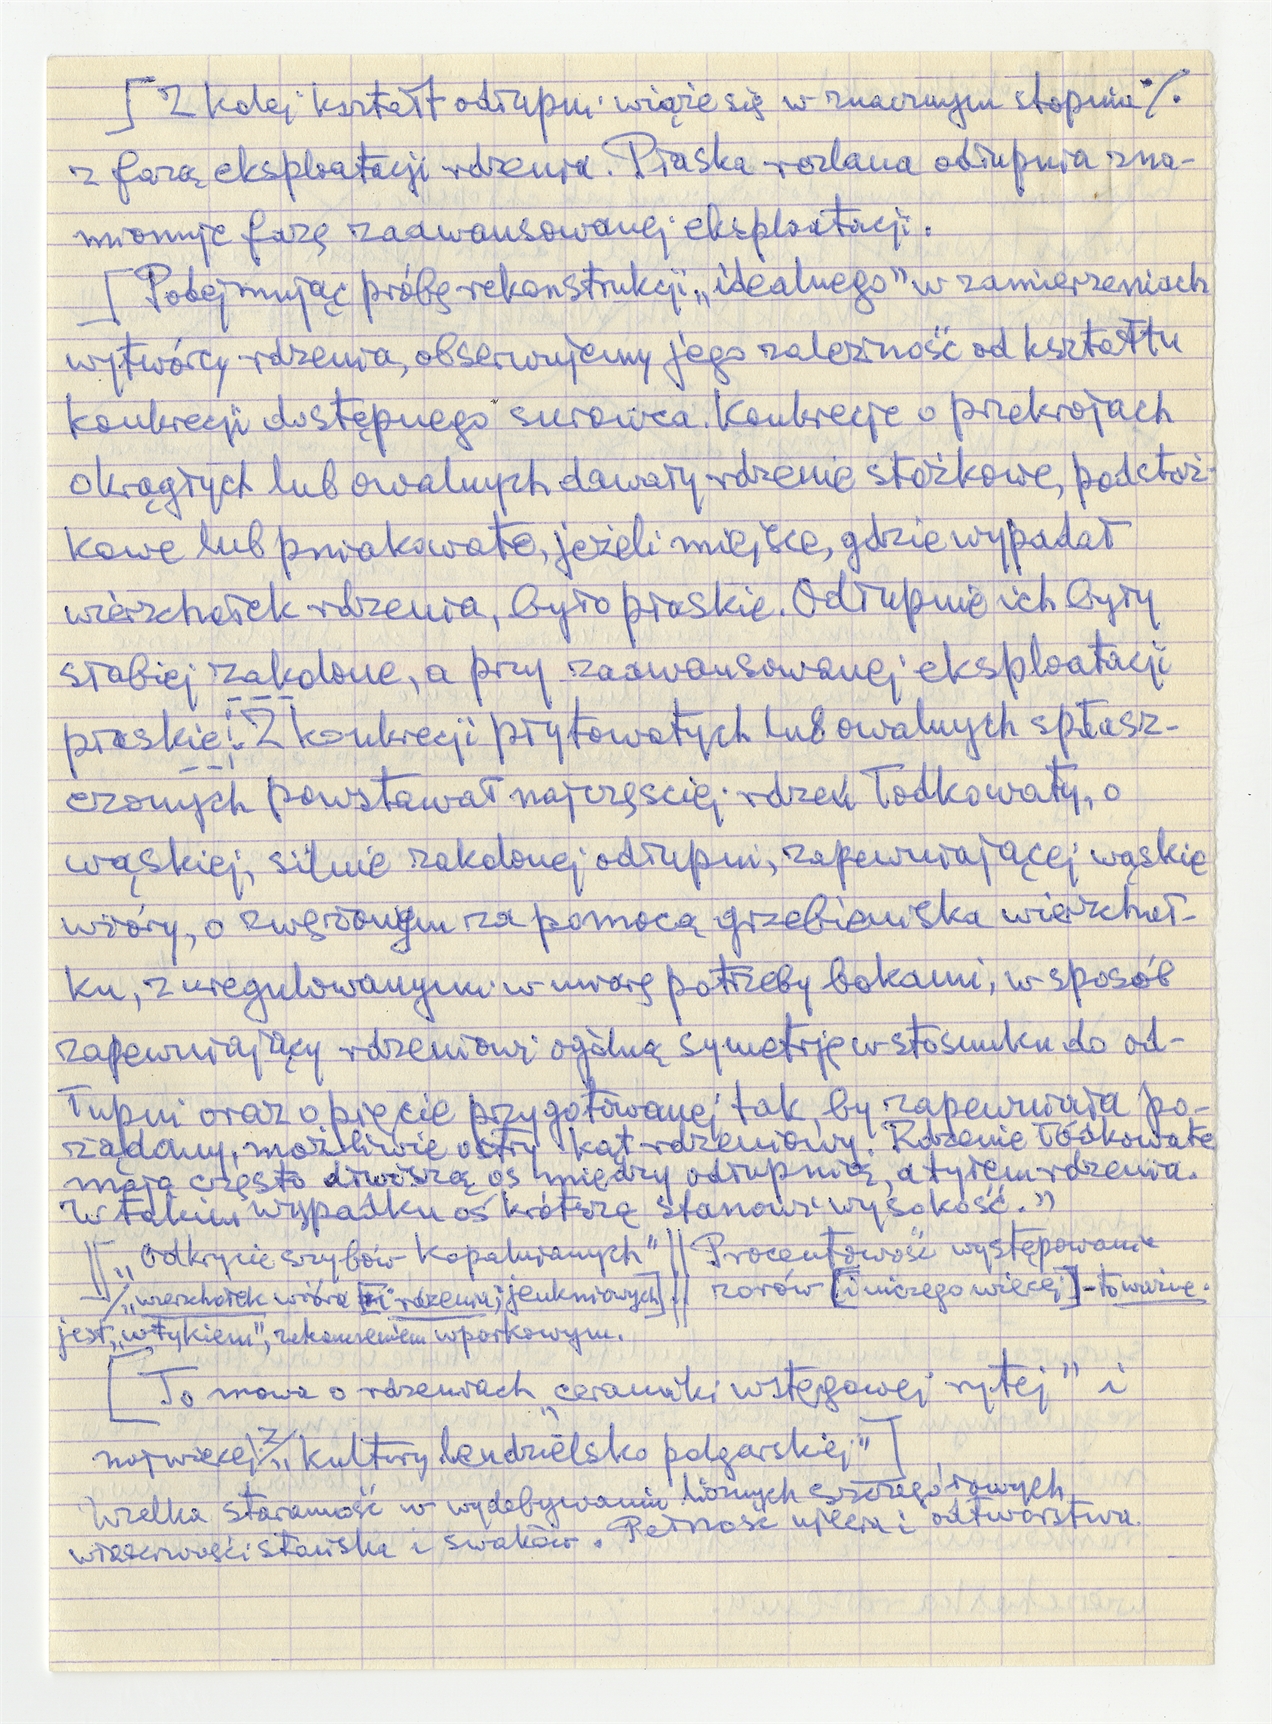 [Z kolei kształt odłupni wiąże się w znacznym stopniu %.
z fazą eksploatacji rdzenia. Płaska rozlana odłupnia zna-
mionuje fazę zaawansowanej eksploatacji.
[Podejmując próbę rekonstrukcji „idealnego” w zamierzeniach
wytwórcy rdzenia, obserwujemy jego zależność od kształtu
konkrecji dostępnego surowca. Konkrecje o przekrojach
okrągłych lub owalnych dawały rdzenie stożkowe, podstoż-
kowe lub pniakowate, jeżeli miejsce, gdzie wypadał
wierzchołek rdzenia, było płaskie. Odłupnie ich były
słabiej zakolone, a przy zaawansowanej eksploatacji
płaskie. Z konkrecji płytowatych lub owalnych spłasz-
czonych powstawał najczęściej rdzeń łódkowaty, o
wąskiej, silnie zakolonej odłupni, zapewniającej wąskie
wióry, o zwężonym za pomocą grzebieniska wierzchoł-
ku, z uregulowanymi w miarę potrzeby bokami, w sposób
zapewniający rdzeniowi ogólną symetrię w stosunku do od-
łupni oraz o pięcie przygotowanej tak, by zapewniała po-
żądany, możliwie ostry kąt rdzeniowy. Rdzenie łódkowate
mają często dłuższą oś między odłupnią, a tyłem rdzenia.
W takim wypadku oś krótszą stanowi wysokość.”)
|| „Odkrycie szybów kopalnianych” || Procentowość występowania
/„wierzchołek wióra [i rdzenia, jenkniowych] || zorów [i niczego więcej] - to ważne.
jest „wtykiem”, zakończeniem wporkowym.
[To mowa o rdzeniach „ceramiki wstęgowej rytej” i
najwięcej „kultury lendzielsko polgarskiej”]
Wielka staranność w wydobywaniu licznych szczegółowych
właściwości stańska i swaków. Pełność ujęcia i odtwórstwa